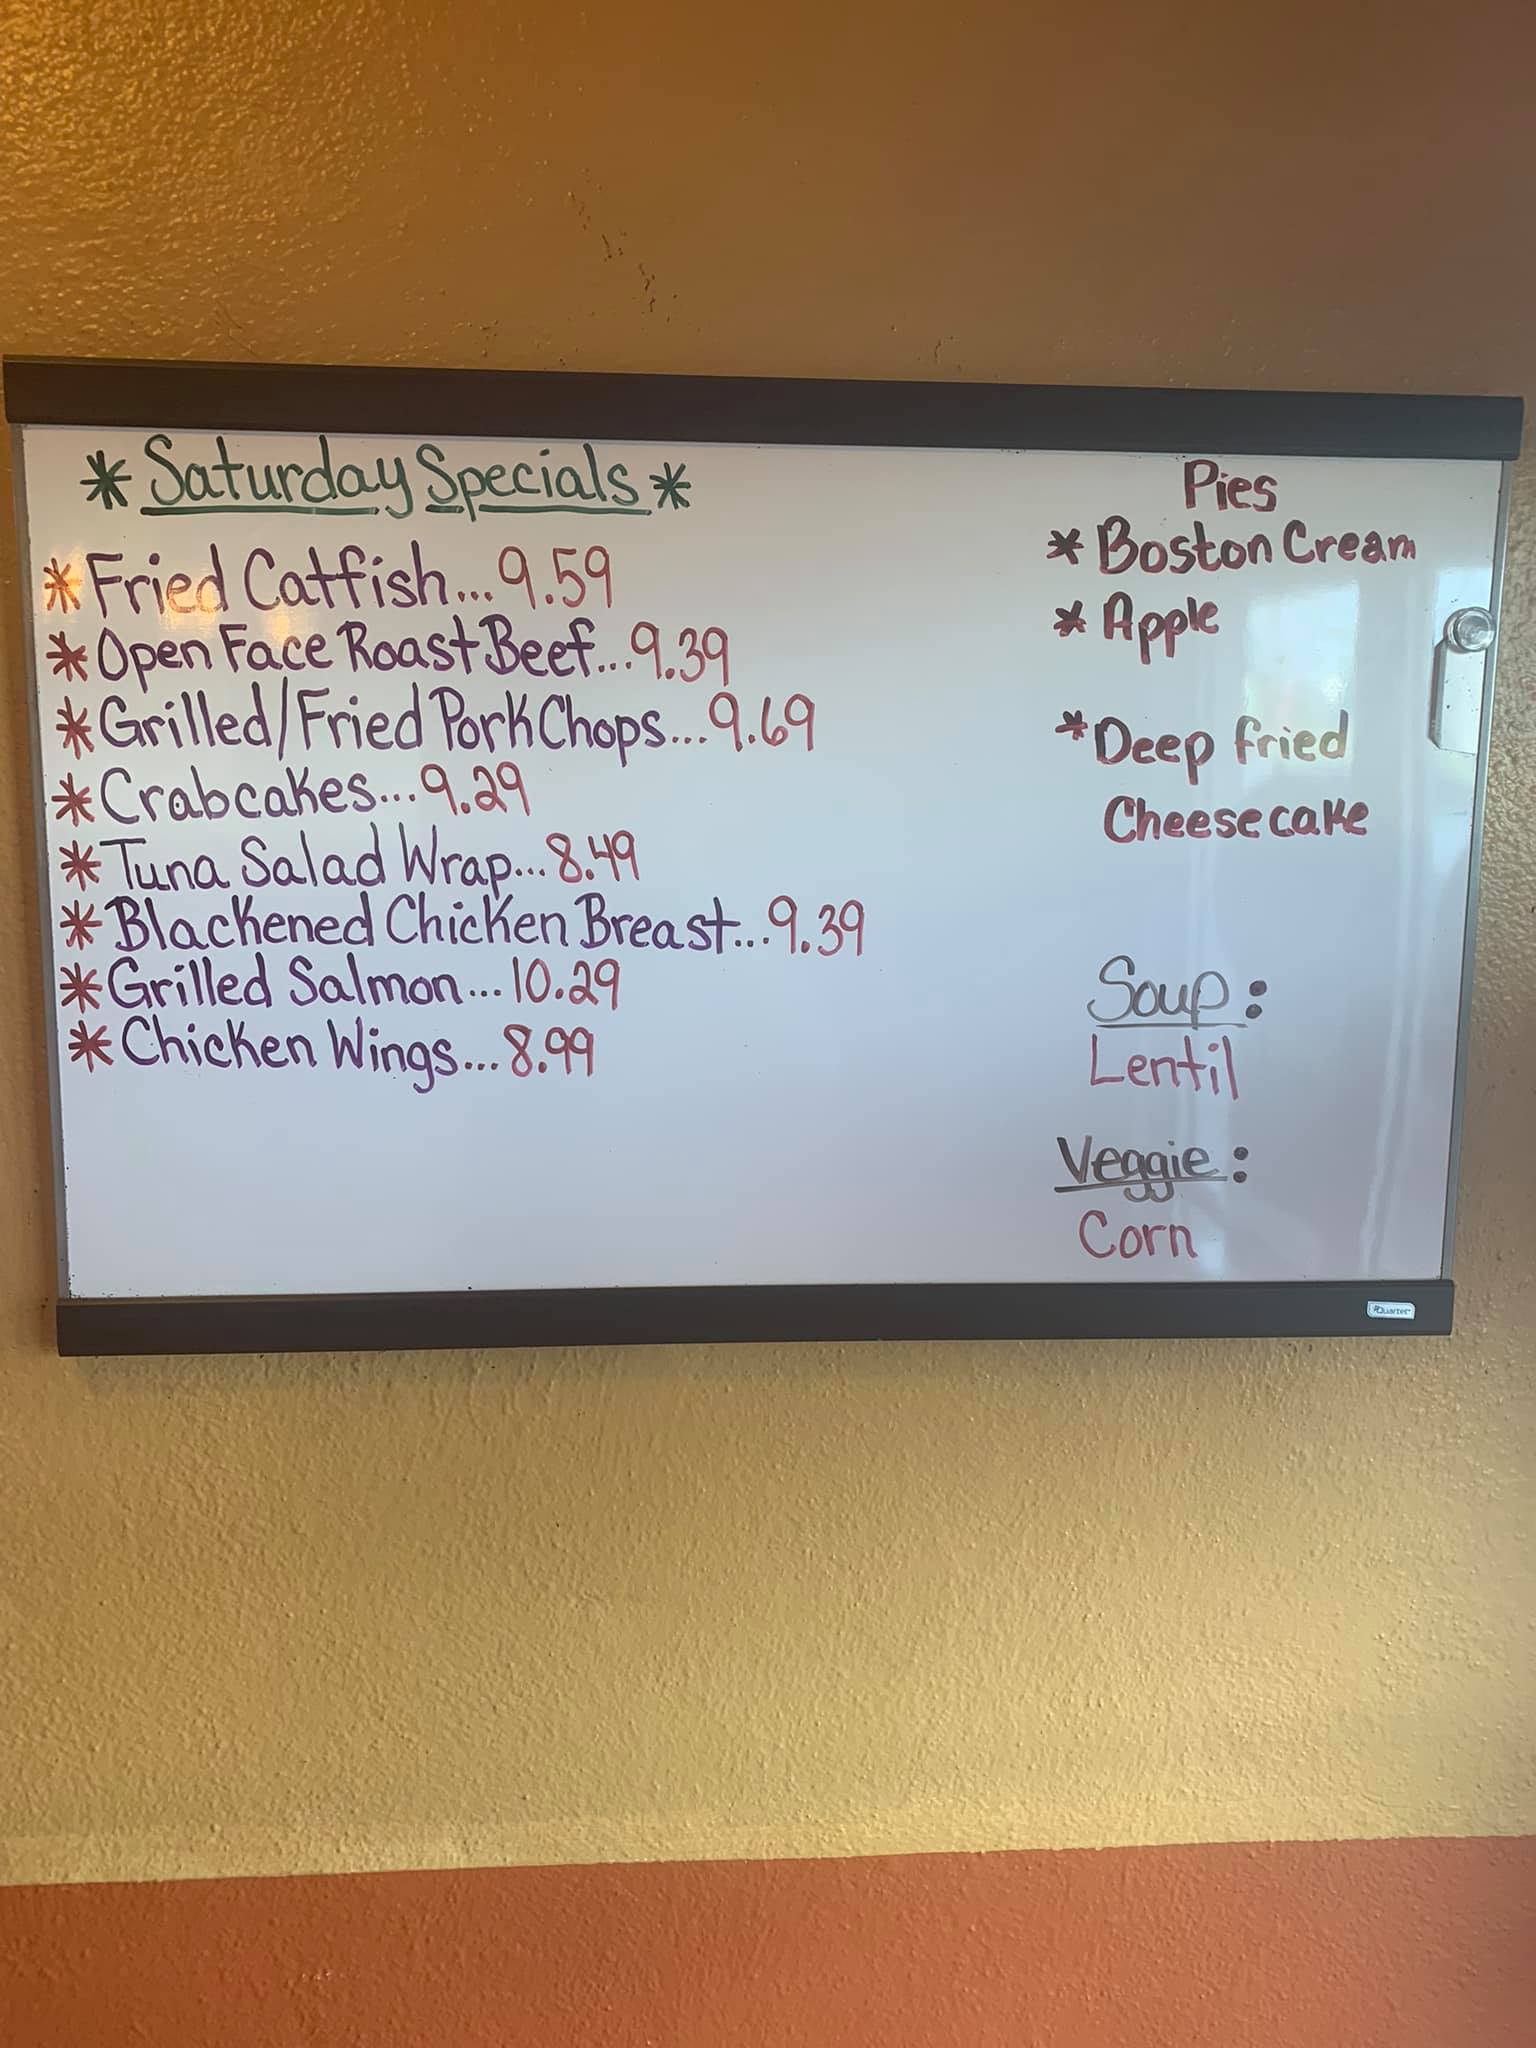 * Saturday Specials *
* Fried Catfish... 9.59
* Open Face Roast Beef... 9.39
* Grilled/Fried Pork Chops... 9.69
* Crabcakes... 9.29
* Tuna Salad Wrap... 8.49
* Blackened Chicken Breast... 9.39
* Grilled Salmon... 10.29
* Chicken Wings... 8.99
Pies
* Boston Cream
* Apple
* Deep fried
Cheesecake
Soup:
Lentil
Veggie:
Corn
Quartet